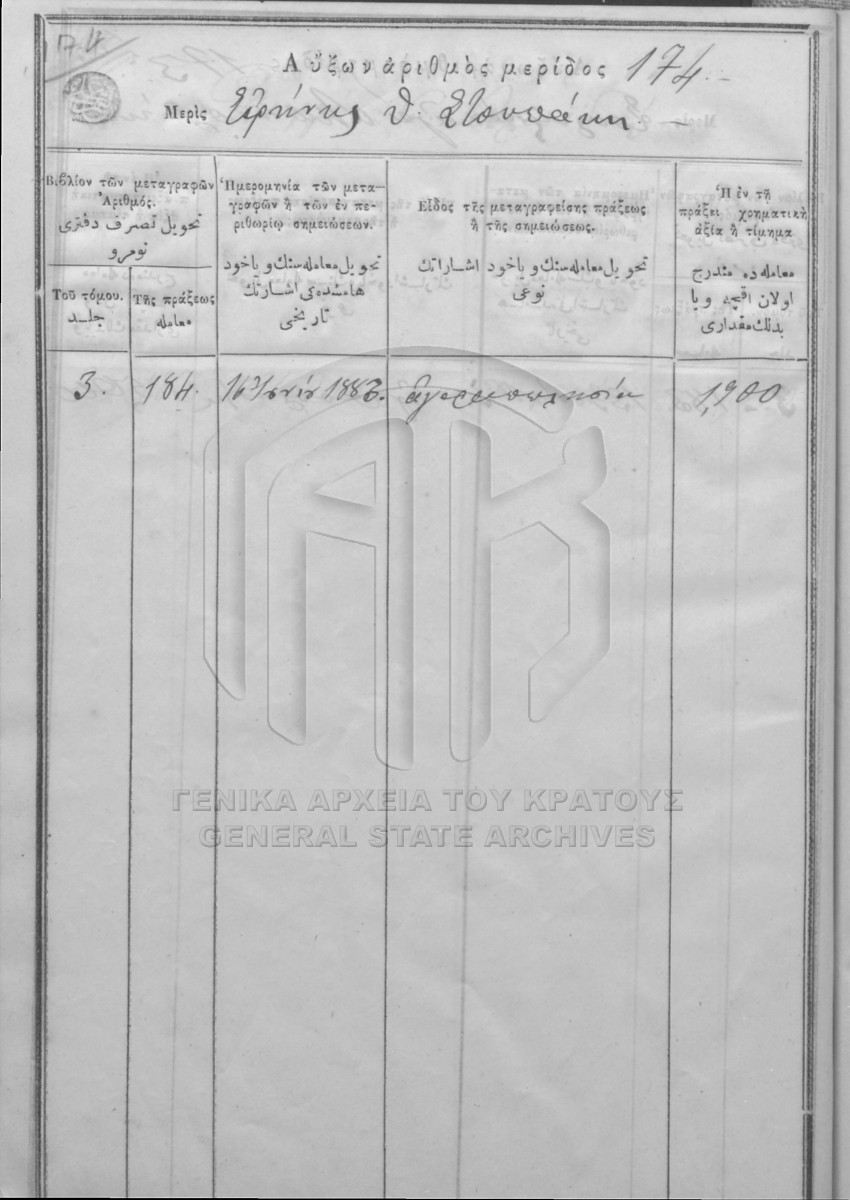 174
Αὔξων ἀριθμὸς μερίδος 174.-
Μερὶς Εἰρήνης Θ. Στουπάκη. -
Βιβλίον τῶν μεταγραφῶν
Ἀριθμός.
تحويل تصرف دفترى
نومرو
Τοῦ τόμου.
جلد
Τῆς πράξεως
معامله
Ἡμερομηνία τῶν μετα-
γραφῶν ἢ τῶν ἐν πε-
ριθωρίῳ σημειώσεων.
تحويل معامله سنك وياخود
هامشده كى اشارتك
تاريخى
Εἶδος τῆς μεταγραφείσης πράξεως
ἢ τῆς σημειώσεως.
تحويل معامله سنك وياخود اشارتك
نوعى
Ἡ ἐν τῇ
πράξει χρηματικὴ
ἀξία ἢ τίμημα
معامله ده مندرج
اولان اقچه ويا
بدلك مقدارى
3. 184. 16 Ἰουνίου 1883. ἀγοραπωλησία 1,900
ΓΕΝΙΚΑ ΑΡΧΕΙΑ ΤΟΥ ΚΡΑΤΟΥΣ
GENERAL STATE ARCHIVES